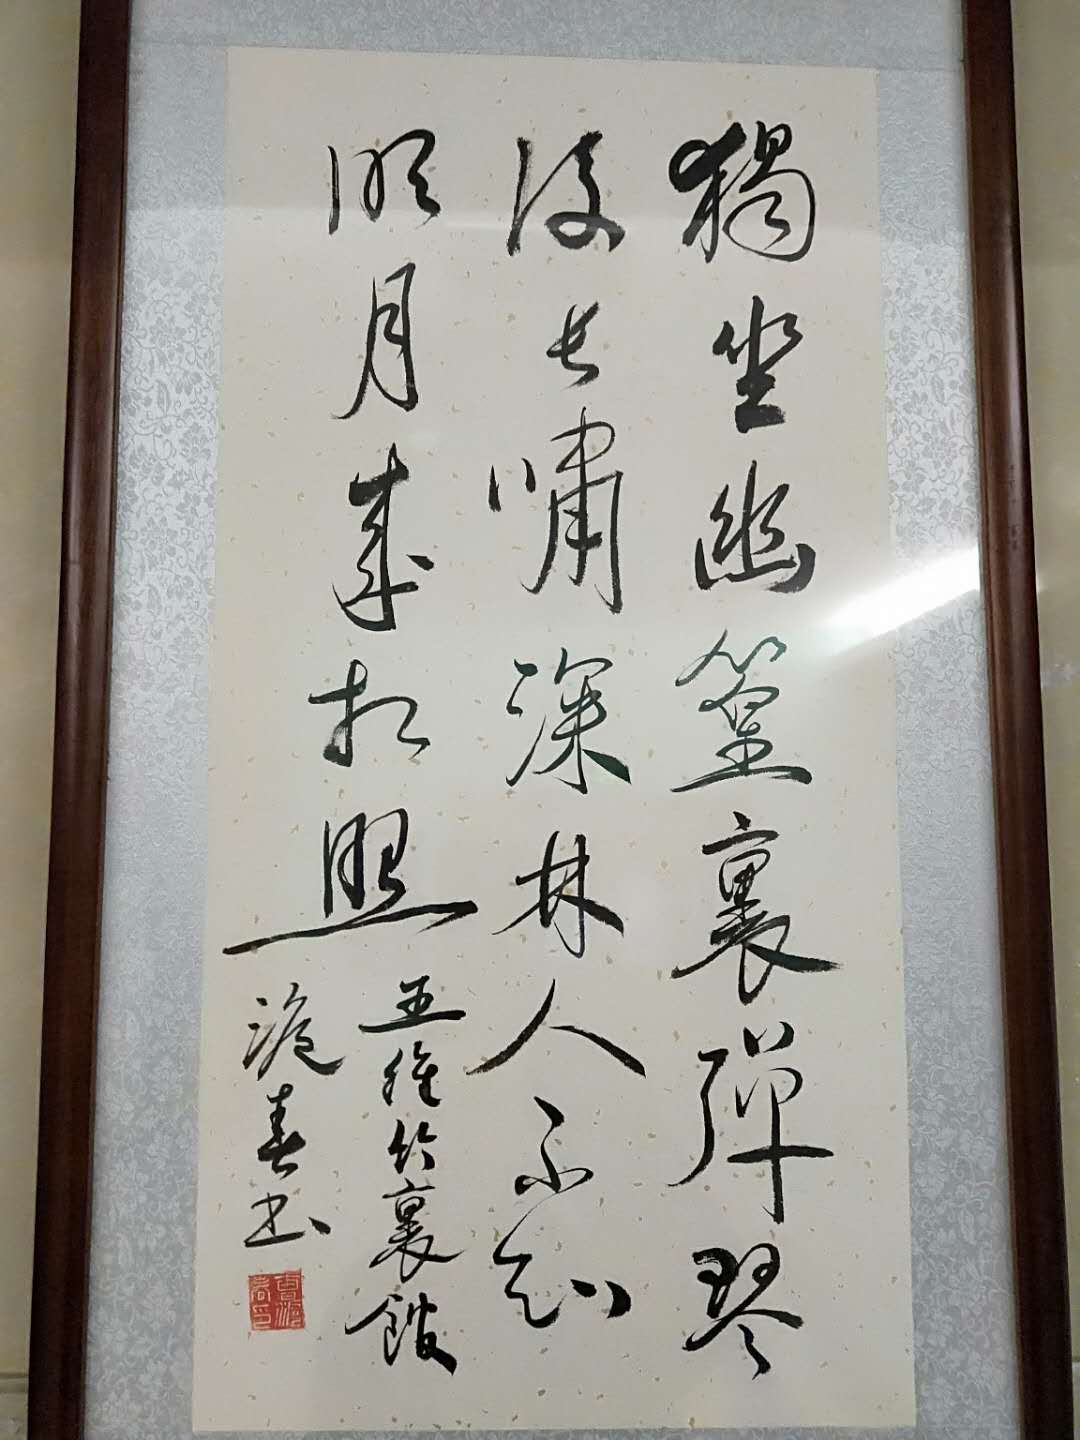 獨坐幽篁裏彈琴
復長嘯深林人不知
明月来相照
王維竹裏館
春书